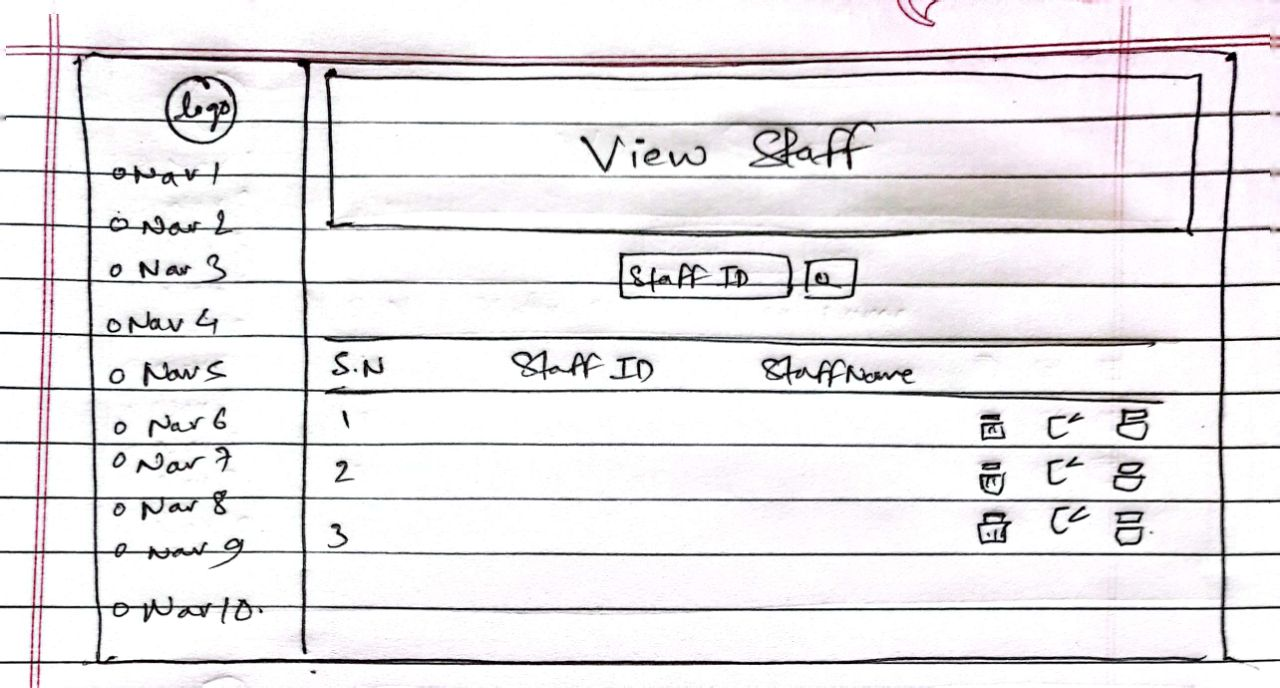 logo
Nav 1
Nav 2
Nav 3
Nav 4
Nav 5
Nav 6
Nav 7
Nav 8
Nav 9
Nav 10.
View Staff
Staff ID
S.N Staff ID Staff Name
1
2
3